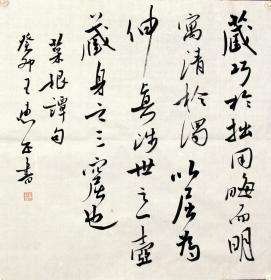 藏巧於拙用晦而明
寓清於濁以屈為
伸真涉世之一壺
藏身之三窟也
菜根譚句
癸卯王 書